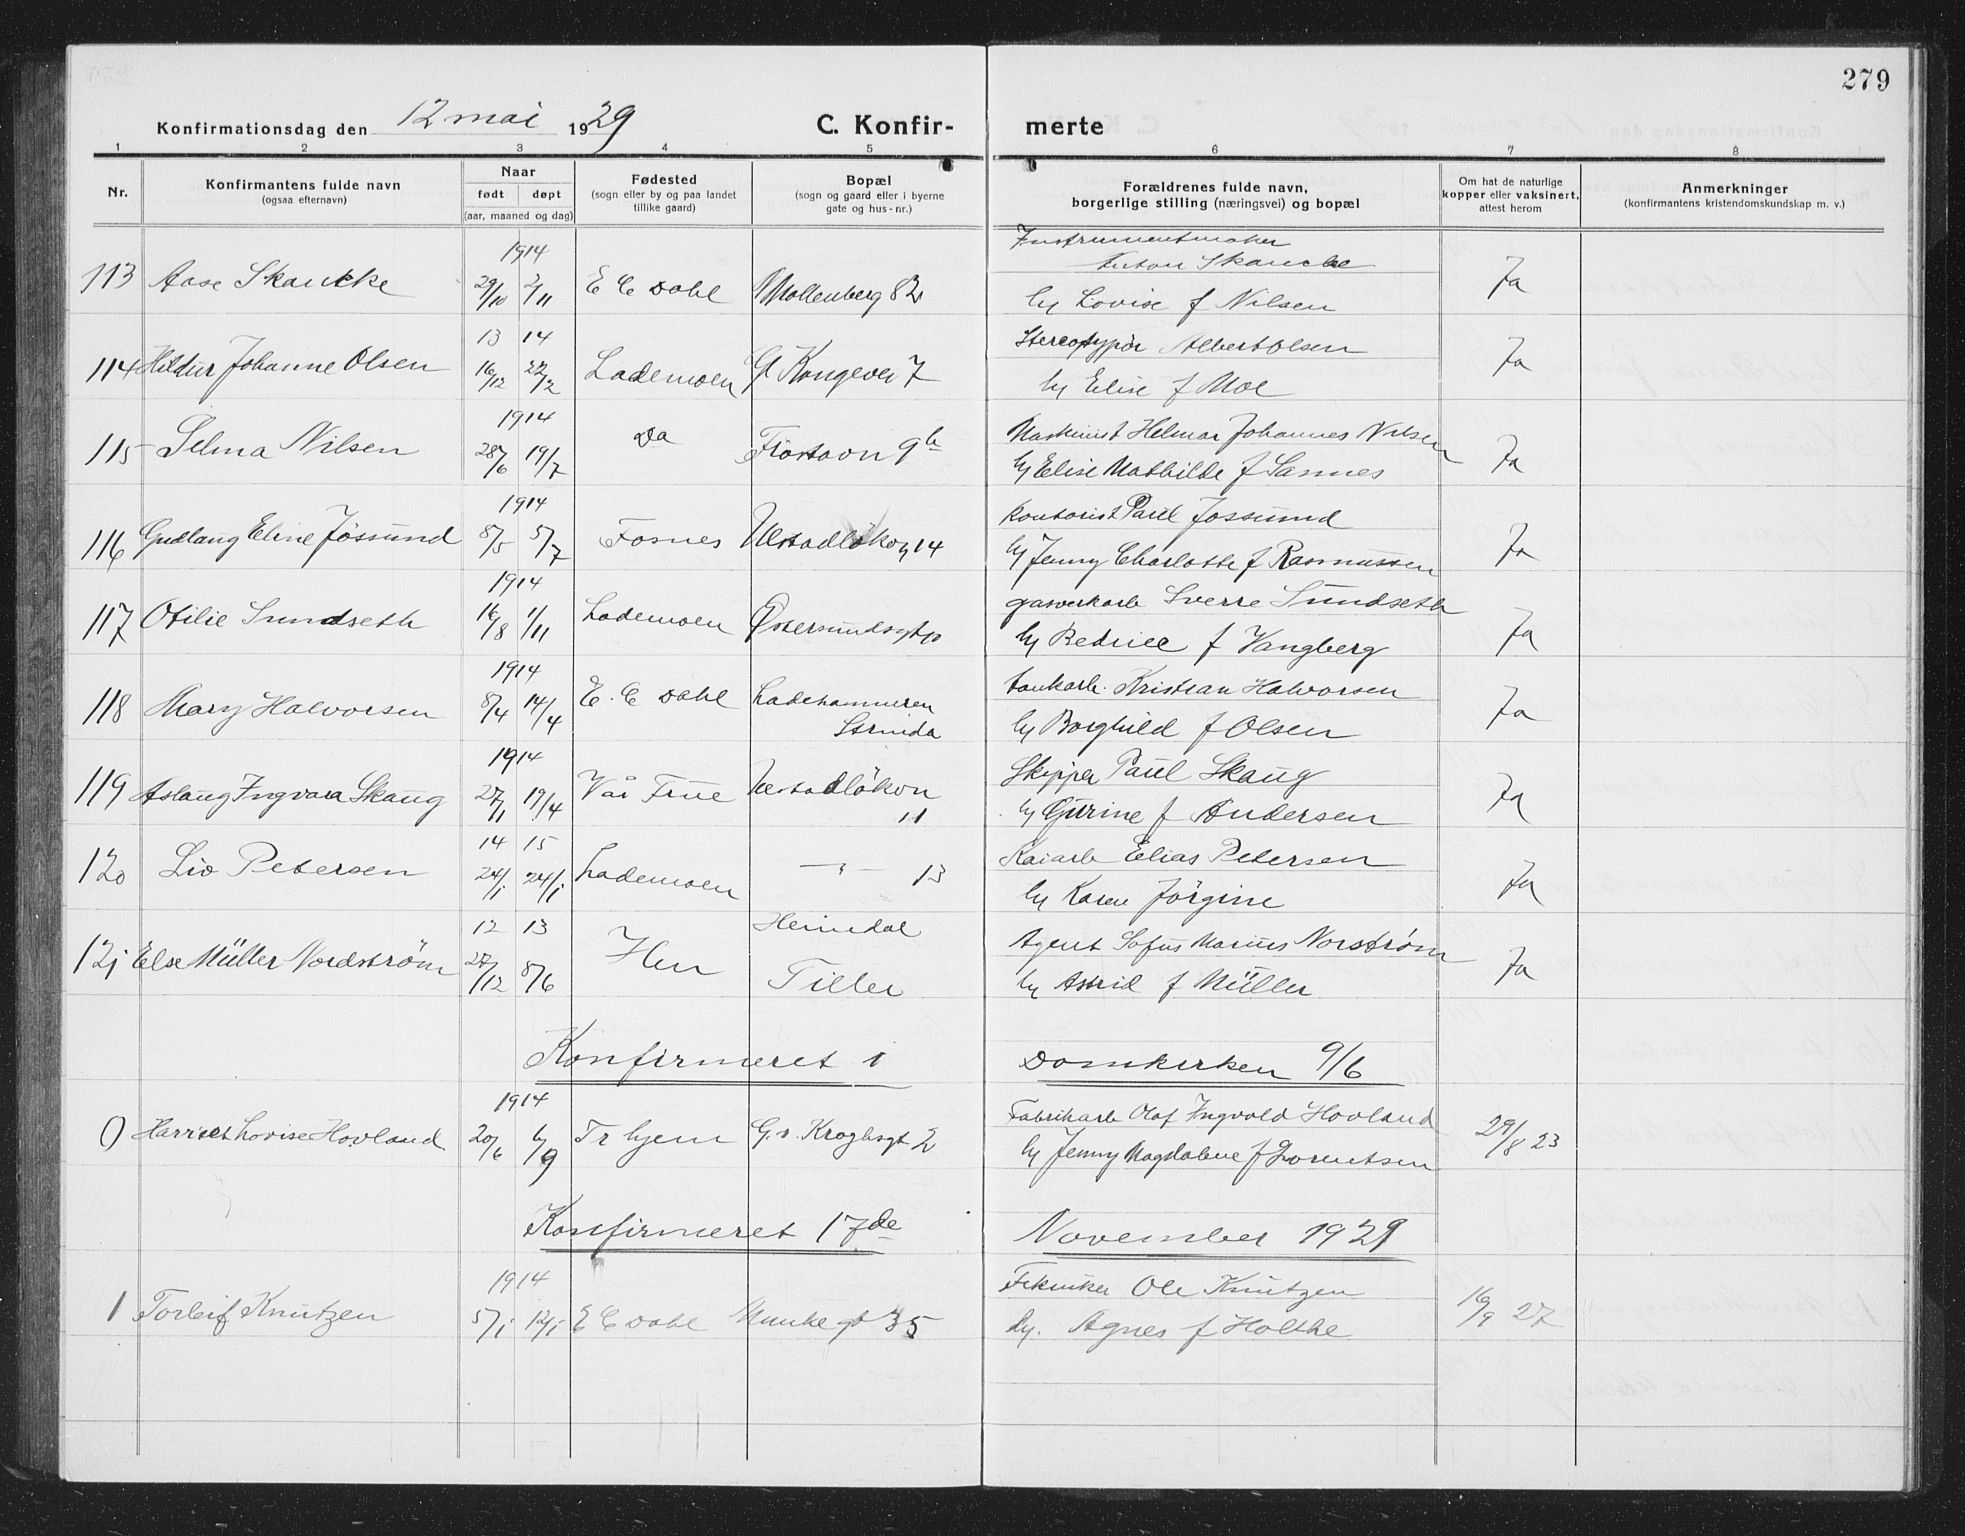 279
Konfirmationsdag den 12 mai 1929 C. Konfir- merte
1 2 3 4 5 6 7 8
Nr. Konfirmantens fulde navn (ogsaa efternavn)
Naar født døpt (aar, maaned og dag)
Fødested (sogn eller by og paa landet tillike gaard)
Bopæl (sogn og gaard eller i byerne gate og hus-nr.)
Forældrenes fulde navn, borgerlige stilling (næringsvei) og bopæl
Om hat de naturlige kopper eller vaksinert, attest herom
Anmerkninger (konfirmantens kristendomskundskap m. v.)
1914 Instrumentmaker
113 Aase Skancke 29/10 2/11 E C Dahl Mollenberg 82 Anton Skancke Ja
h Lovise f Nilsen
13 14 Stereotypör Albert Olsen
114 Hildur Johanne Olsen 16/12 22/2 Lademoen Gl Kongevei 7 Ja
h Elise f Moe
1914 Maskinist Helmar Johannes Nilsen
115 Selma Nilsen 28/6 19/7 Da 9b Ja
h Elise Mathilde f Sannes
1914 Kontorist Paul Jossund
116 Gudlaug Eline Jössund 8/5 5/7 Fosnes 14 Ja
h Jenny Charlotte f Rasmussen
1914 gasverkarb Sverre Sundseth
117 Otilie Sundseth 16/8 1/11 Lademoen Østersundsgt 10 Ja
h f Vangberg
1914 Kristian Halvorsen
118 Mary Halvorsen 8/4 14/4 E. C Dahl Ladehammeren Strinda Ja
h Borghild f Olsen
1914 Skipper Paul Skaug
119 Aslaug Ingvara Skaug 27/1 19/4 Vår Frue 11 Ja
h Gurine f Andersen
14 15 Kaiarb Elias Petersen
120 Liv Petersen 24/1 24/1 Lademoen — " — 13 Ja
h Karen Jörgine
12 13 Heimdal Agent Sofus Marius Norström
121 Else Müller Nordström 27/12 8/6 Hen Tiller Ja
h Astrid f Müller
Konfirmeret i Domkirken 9/6
1914 Fabrikarb Olaf Ingvold Hovland
0 Harriet Lovise Hovland 20/6 6/9 Tr hjem G. v. Kroghsgt 2 29/8 23
h Jenny Magdalene f Lorentsen
Konfirmeret 17de November 1929
1914 Tekniker Ole Knutzen
1 Torleif Knutzen 5/1 12/1 E C Dahl Munkegt 35 16/9 27
h. Agnes f Holthe